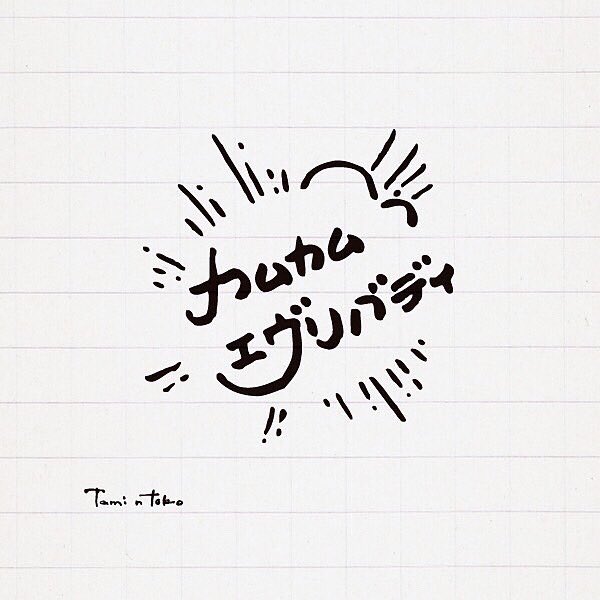 カムカム
エヴリバディ
Tami n Tokio